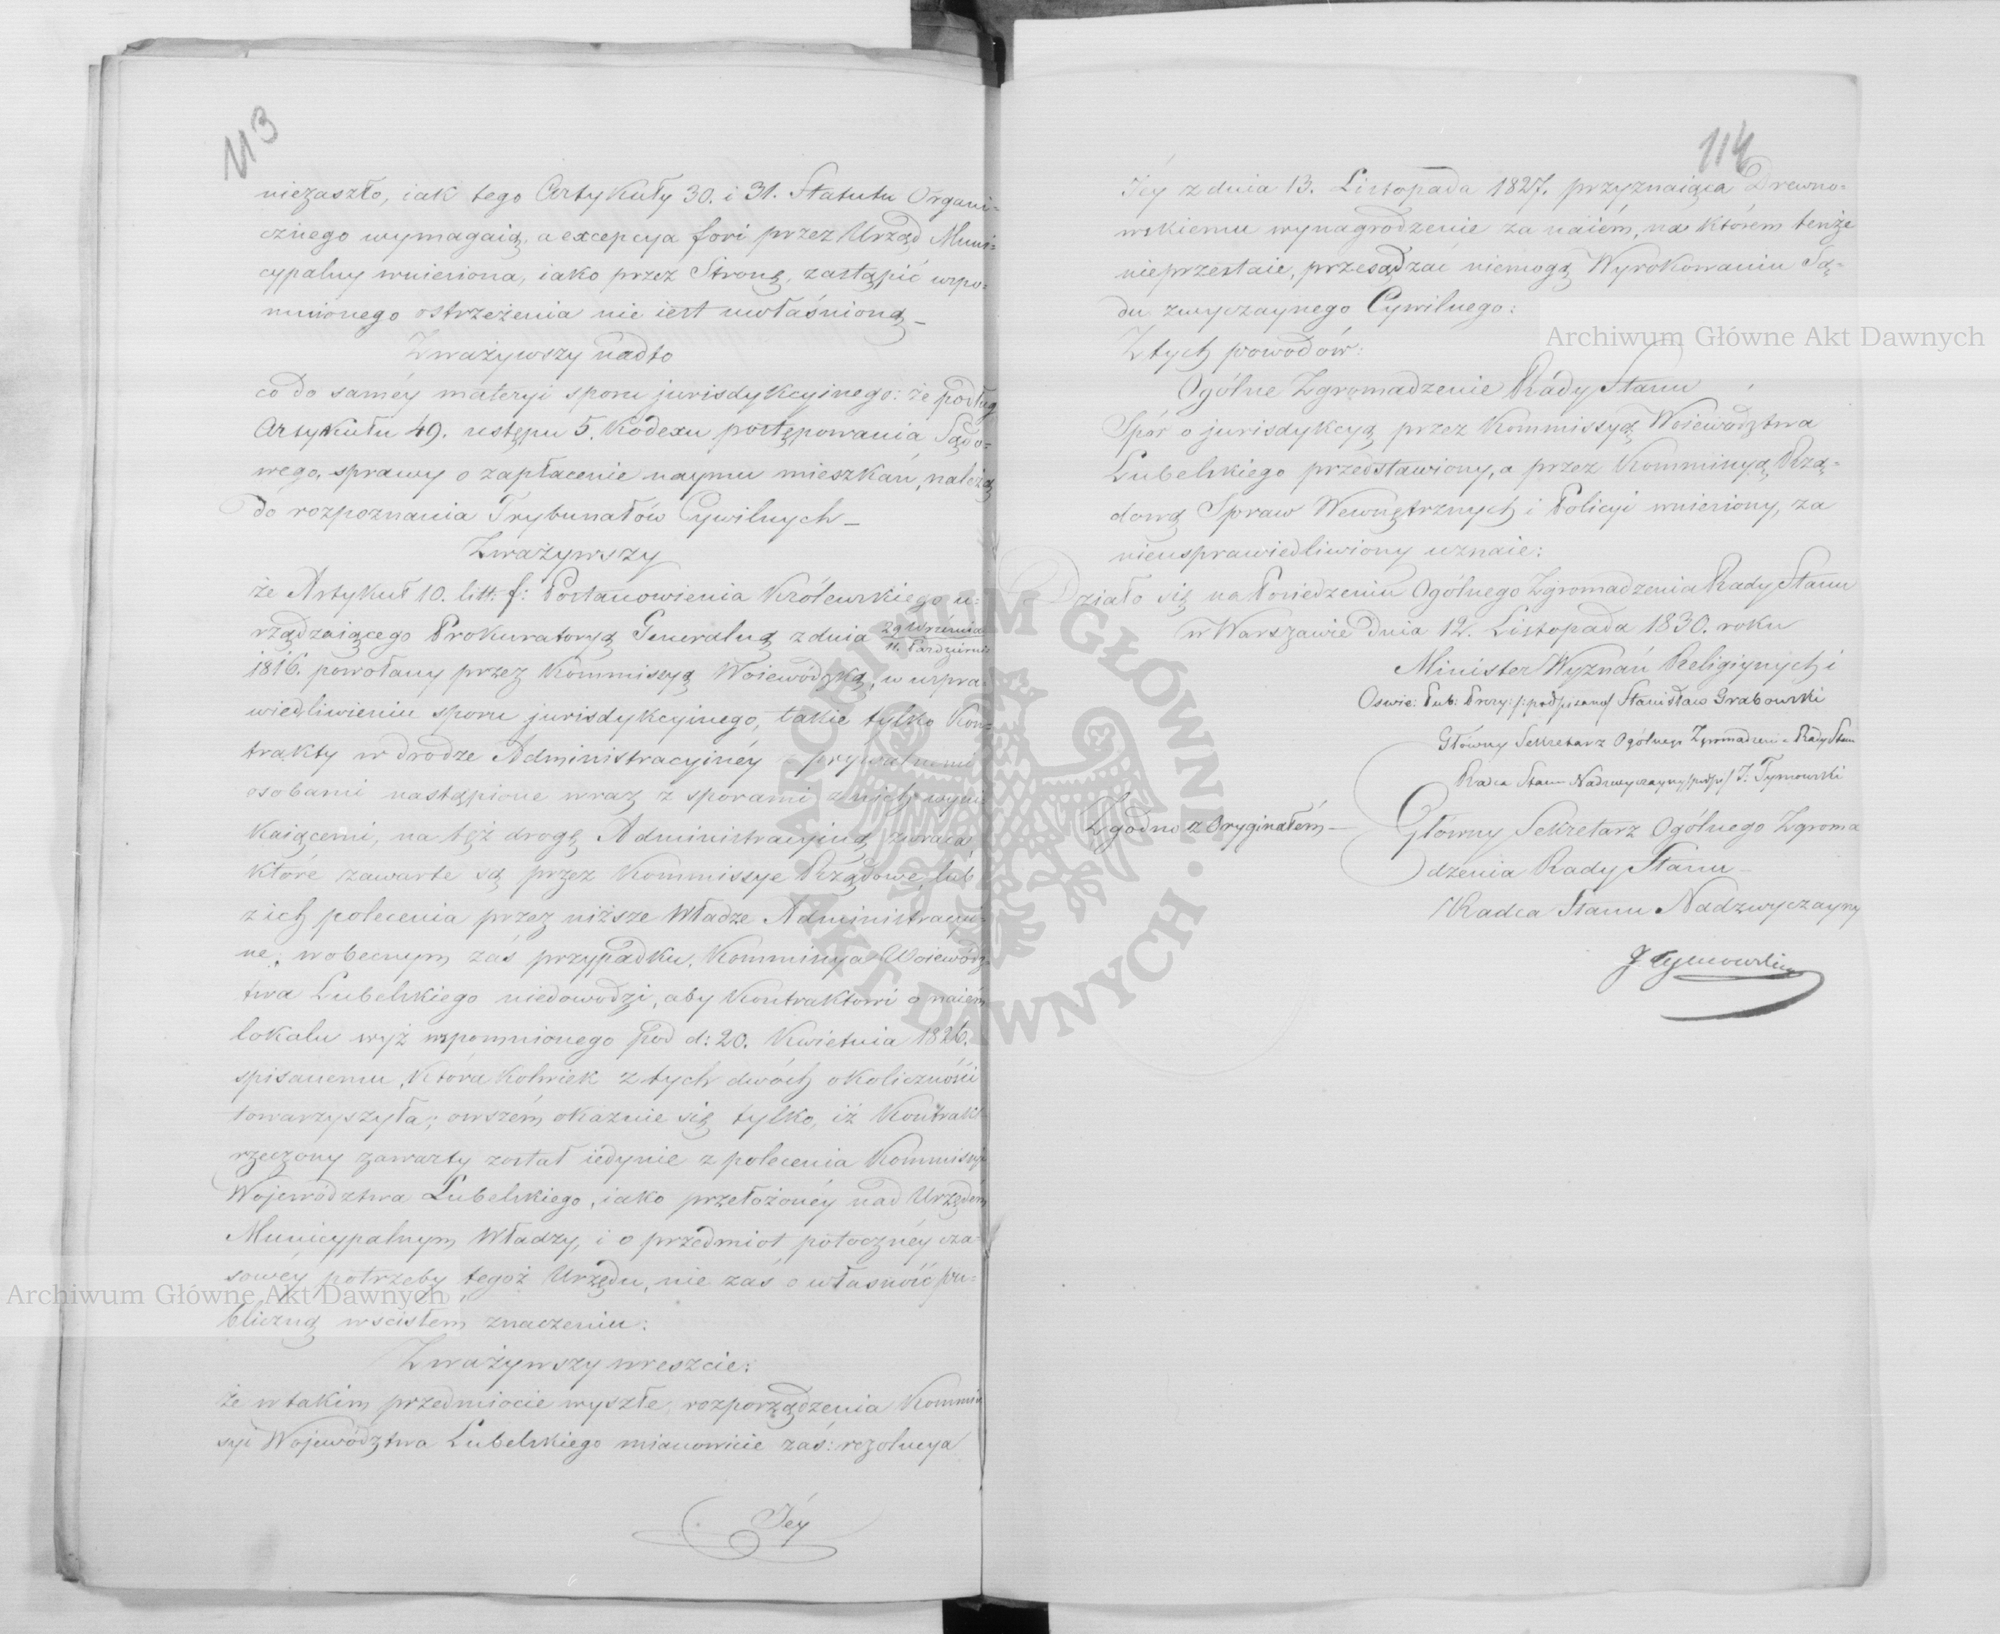 113
niezaszło, iak tego Artykuły 30. i 31. Statutu Organi-
cznego wymagaią, a excepcya fori przez Urząd Muni-
cypalny wniesiona, iako przez Stronę, zastąpić wspo-
mnionego ostrzeżenia nie iest uwłaśnioną_
Zważywszy nadto
co do saméy materyi sporu jurisdykcyinego: że podług
Artykułu 49. ustępu 5. Kodexu postępowania Sądo-
wego, sprawy o zapłacenie naymu mieszkań, należą
do rozpoznania Trybunałów Cywilnych_
Zważywszy
że Artykuł 10. litt: f: Postanowienia Królewskiego u-
rządzaiącego Prokuratoryą Generalną z dnia 29 Września
11. Październ:
1816. powołany przez Kommissyą Woiewódzką, w uspra-
wiedliwieniu sporu jurisdykcyinego, takie tylko Kon-
trakty w drodze Administracyinéy z prywatnemi
osobami nastąpione wraz z sporami z nich wyni-
kaiącemi, na tęż drogę Administracyiną zwraca,
które zawarte są przez Kommissye Rządowe, lub
z ich polecenia przez niższe Władze Administracyi-
ne; w obecnym zaś przypadku, Kommissya Woiewódz-
twa Lubelskiego niedowodzi, aby Kontraktowi o naiem
lokalu wyż wspomnionego pod d: 20. Kwietnia 1826.
spisanemu, którakolwiek z tych dwóch okoliczności
towarzyszyła; owszém okazuie się tylko, iż Kontrakt
rzeczony zawarty został iedynie z polecenia Kommissyi
Województwa Lubelskiego, iako przełożonéy nad Urzędem
Municypalnym Władzy, i o przedmiot potocznéy cza-
sowéy potrzeby tegoż Urzędu, nie zaś o własność pu-
bliczną w ścisłem znaczeniu:
Zważywszy wreszcie:
że w takim przedmiocie wyszłe rozporządzenia Kommis-
syi Województwa Lubelskiego mianowicie zaś: rezolucya
Jéy
114
Jéy z dnia 13. Listopada 1827. przyznaiąca Drewno-
wskiemu wynagrodzenie za naiém, na którem tenże
nieprzestaie, przesądzać niemogą Wyrokowaniu Są-
du zwyczaynego Cywilnego:
Z tych powodów:
Ogólne Zgromadzenie Rady Stanu
Spór o jurisdykcyą przez Kommissyą Woiewództwa
Lubelskiego przedstawiony, a przez Kommissyą Rzą-
dową Spraw Wewnętrznych i Policyi wniesiony, za
nieusprawiedliwiony uznaie:
Działo się na Posiedzeniu Ogólnego Zgromadzenia Rady Stanu
w Warszawie dnia 12. Listopada 1830. roku
Minister Wyznań Religiynych i
Oswie: Pub: Prezy: /:podpisano/ Stanisław Grabowski
Główny Sekretarz Ogólnego Zgromadzenia Rady Stanu
Radca Stanu Nadzwyczayny /podp:/ J. Tymowski
Zgodno z Oryginałém_
Główny Sekretarz Ogólnego Zgroma
dzenia Rady Stanu_
Radca Stanu Nadzwyczayny
J Tymowski
Archiwum Główne Akt Dawnych
Archiwum Główne Akt Dawnych
ARCHIWUM GŁÓWNE · AKT DAWNYCH ·